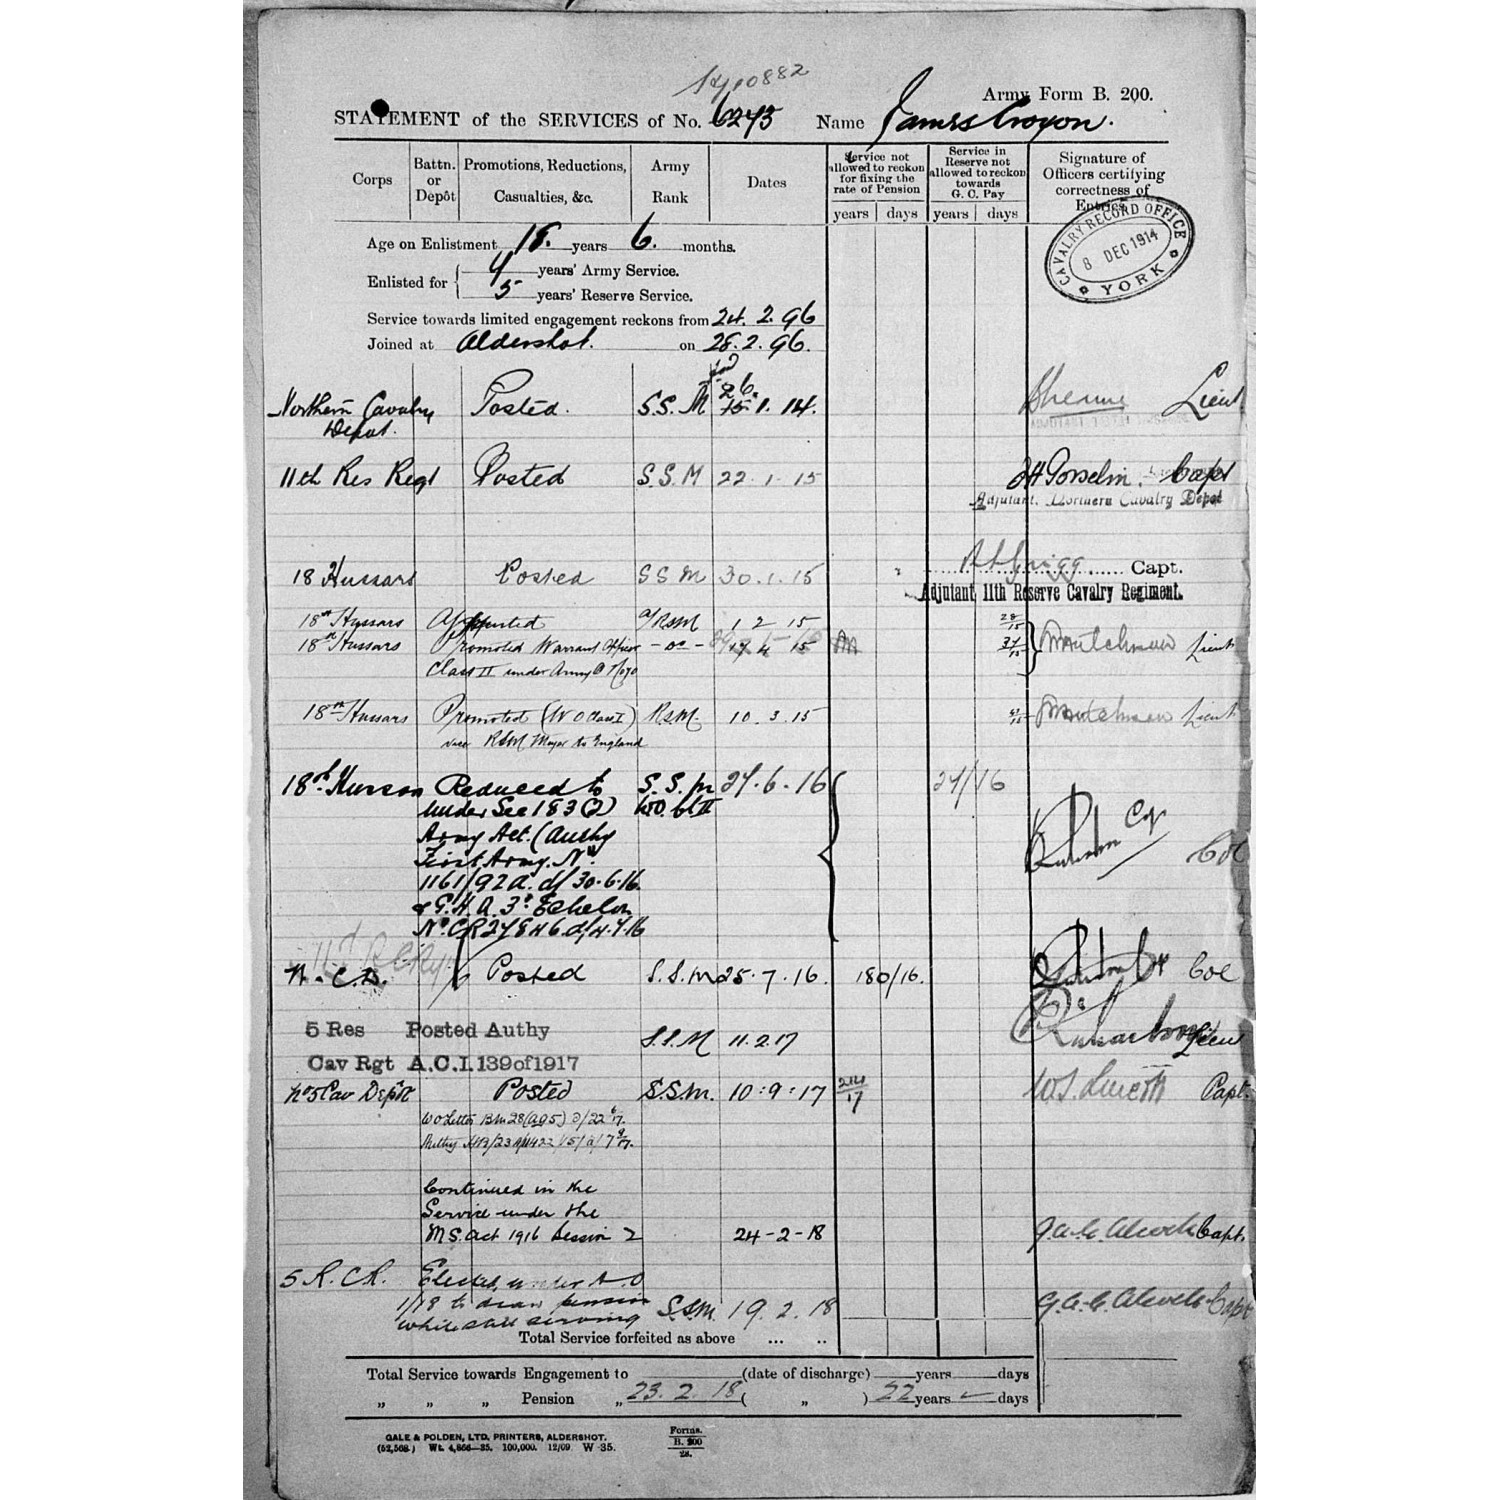 Army Form B. 200.
STATEMENT of the SERVICES of No. 6273 Name James Croyon.
Corps
Battn. or Depôt
Promotions, Reductions, Casualties, &c.
Army Rank
Dates
Service not allowed to reckon for fixing the rate of Pension
Service in Reserve not allowed to reckon towards G. C. Pay
Signature of Officers certifying correctness of Entries
years days years days
CAVALRY RECORD OFFICE
8 DEC 1914
YORK
Age on Enlistment 18. years 6. months.
Enlisted for
4 years' Army Service.
5 years' Reserve Service.
Service towards limited engagement reckons from 24. 2. 96
Joined at Aldershot. on 28. 2. 96.
Northern Cavalry Depot. Posted. S.S.M 26. 1. 14. Lieut
11th Res Regt Posted S.S.M 22. 1. 15 Capt
Adjutant, Northern Cavalry Depot
18 Hussars Posted S S M 30. 1. 15 Capt.
Adjutant, 11th Reserve Cavalry Regiment.
18th Hussars Appointed a/RSM 1 2 15
18th Hussars Promoted Warrant Officer - do - 4 15 Lieut
Class II under Army O 70
18th Hussars Promoted (W O Class I) R.S.M. 10. 3. 15 Lieut
vice RSM Mayer to England
18th Hussars Reduced to S.S.M 27. 6. 16 27/16
under Sec 183 (2) WO. Cl II
Army Act. (Authy
First Army. No
1161/92 A. d/ 30.6.16
& G.H.Q. 3rd Echelon
No. CR 27846 d/ 4.7.16 Col
N. C. D. Posted S.S.M 25. 7. 16. 180/16. Col
5 Res Posted Authy S.S.M 11.2.17 Lieut
Cav Rgt A.C.I. 139 of 1917
No 5 Cav Depôt Posted S.S.M. 10:9:17 214/17 Capt.
WO Letter
Continued in the
Service under the
M.S. Act 1916 Session 2 24-2-18 Capt.
5 R. C R. Elected, under A.O
1/18 to draw pension S.S.M. 19. 2. 18 Capt
while still serving
Total Service forfeited as above ... ..
Total Service towards Engagement to (date of discharge) years days
„ „ „ Pension „ 23. 2. 18 ( „ ) 22 years - days
GALE & POLDEN, LTD. PRINTERS, ALDERSHOT.
(52,568.) Wt. 4,866—35. 100,000. 12/09. W 35.
Forms.
B. 200
28.